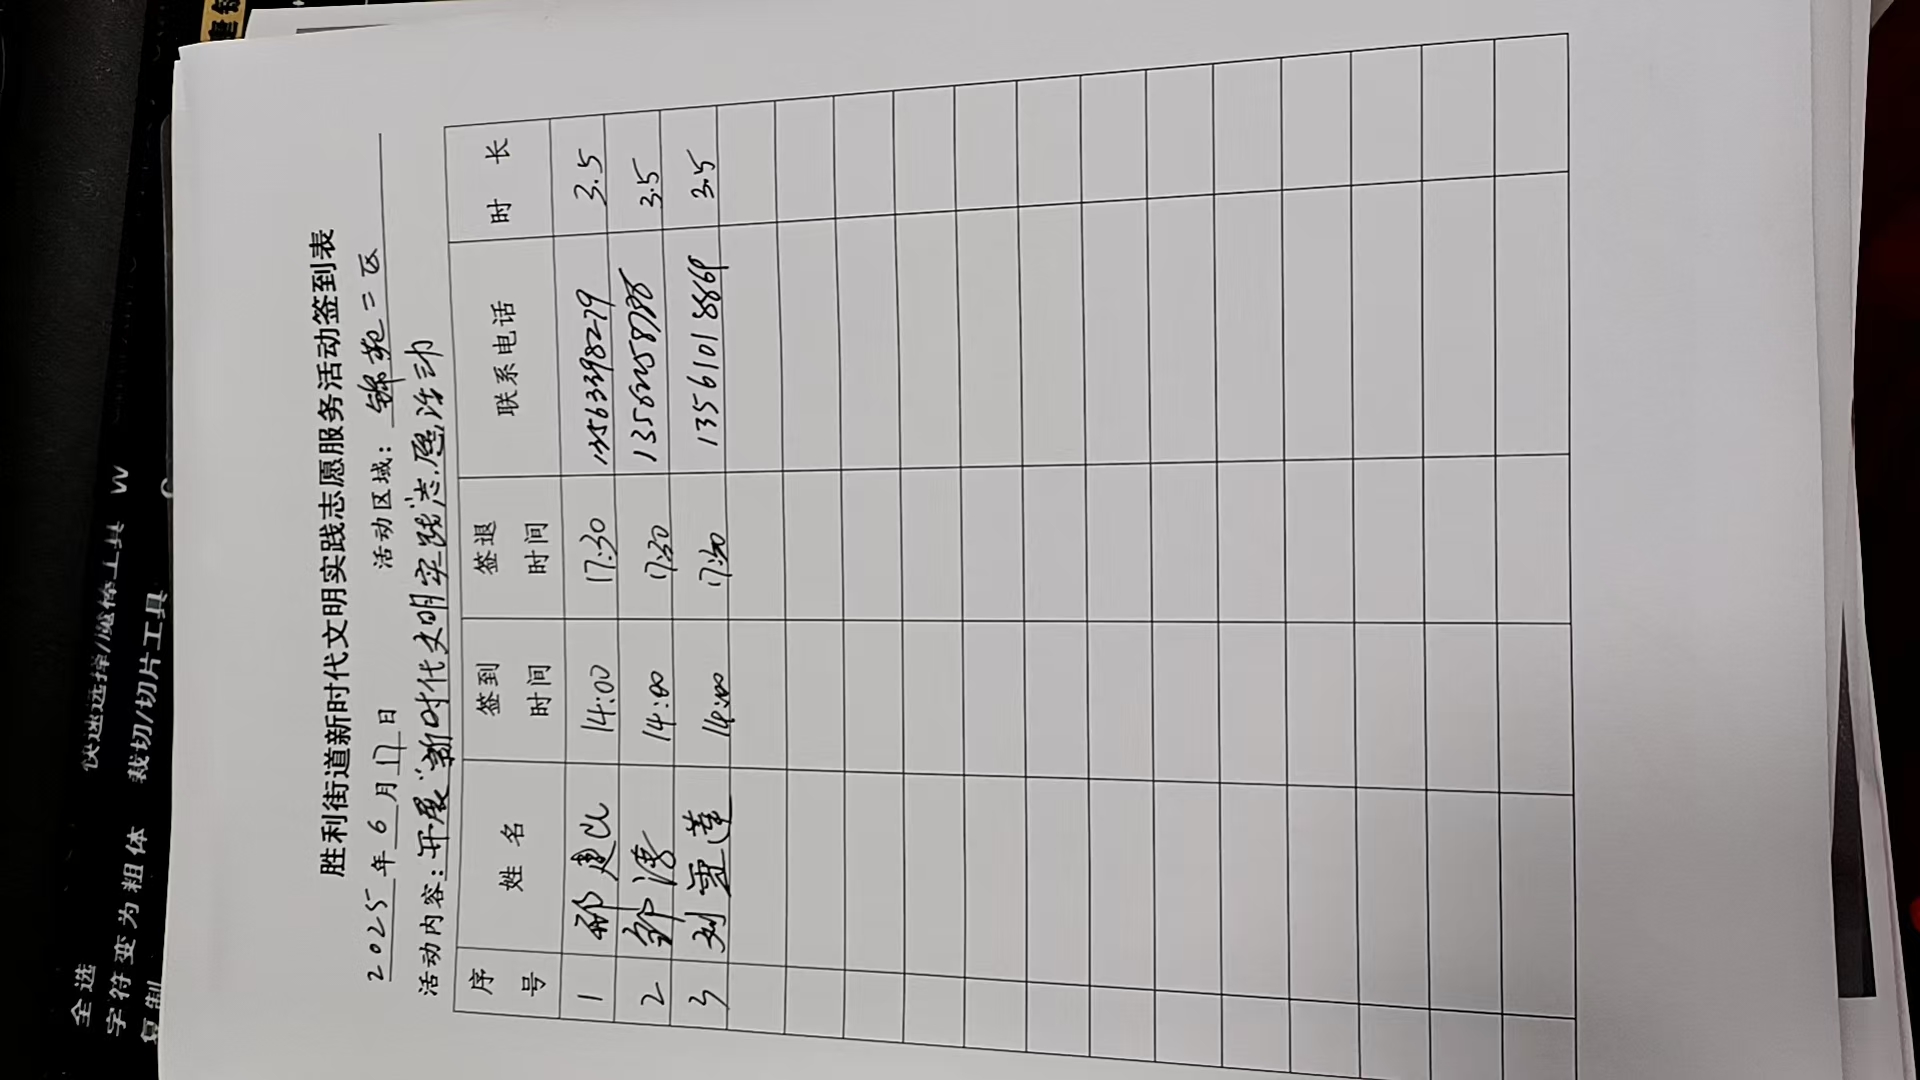 胜利街道新时代文明实践志愿服务活动签到表
2025年6月17日 活动区域：锦苑二区
活动内容：开展"新时代文明实践"志愿活动
序号 姓名 签到时间 签退时间 联系电话 时长
1 建山 14:00 17:30 13563398279 3.5
2 邹涛 14:00 17:30 3.5
3 刘雪莲 14:00 17:30 13561018869 3.5
全选
字符变为粗体 裁切/切片工具
复制
快速选择/魔棒工具 W